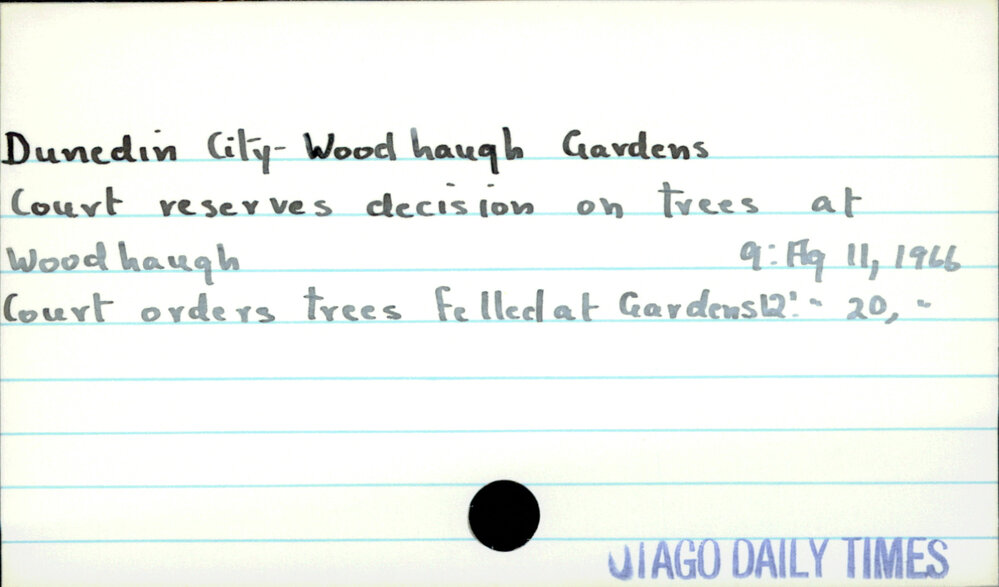 Dunedin City- Woodhaugh Gardens
Court reserves decision on trees at
Woodhaugh 9: Ag 11, 1966
Court orders trees felled at Gardens 12: " 20, "
OTAGO DAILY TIMES